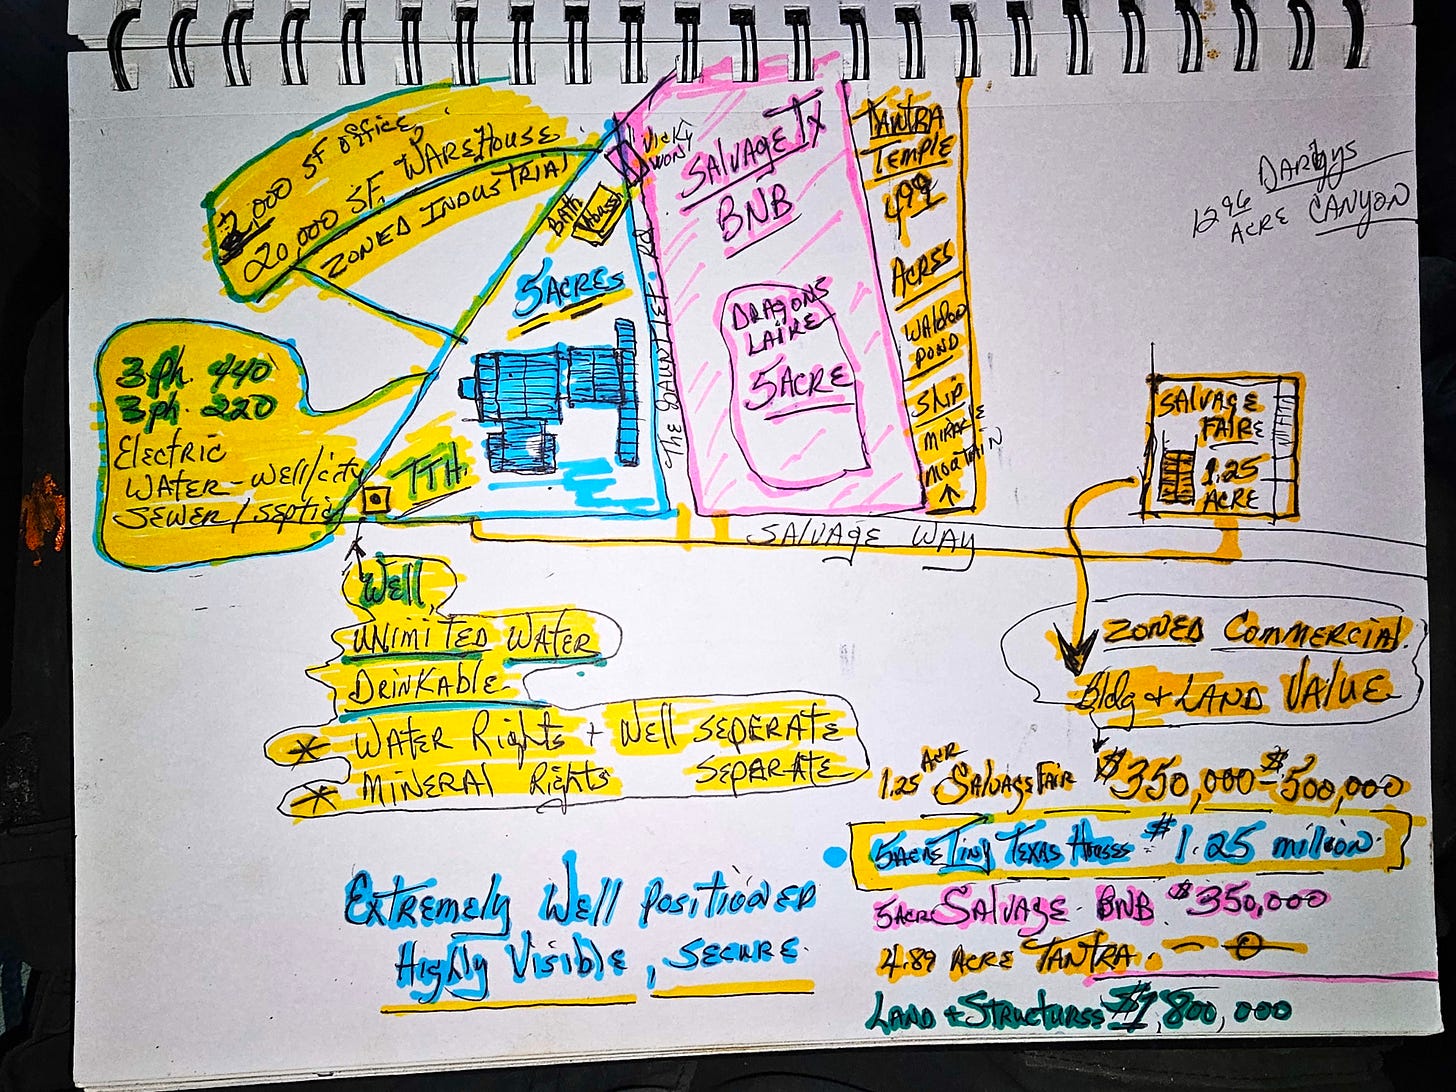 2,000 SF OFFICE,
20,000 SF. WAREHOUSE
ZONED INDUSTRIAL
3 ph. 440
3 ph. 220
ELECTRIC
WATER-WELL/city
SEWER/SEPTIC
TTH.
BATH
HOUSE
5 ACRES
VICKY
WONY
The GAUNTLET RD
SALVAGE TX
BNB
DRAGONS
LAIRE
5 ACRE
TANTRA
TEMPLE
499
ACRES
WALDOO
POND
SHIP
MIRACLE
MOATAIN
SALVAGE WAY
DARBYS
12 96
ACRE CANYON
SALVAGE
FAIRE
1.25
ACRE
ZONED COMMERCIAL
Bldg + LAND VALUE
WELL
UNIMITED WATER
DRINKABLE
* WATER Rights + WELL SEPERATE
* MINERAL Rights SEPARATE
EXTREMELY WELL POSITIONED
Highly Visible, SECURE
1.25 ACR SALVAGE FAIR $350,000-$500,000
5 ACRE TINY TEXAS HOUSES $1.25 million
5 ACR SALVAGE BNB $350,000
4.89 ACRE TANTRA. - 0 -
LAND + STRUCTURES $1,800,000